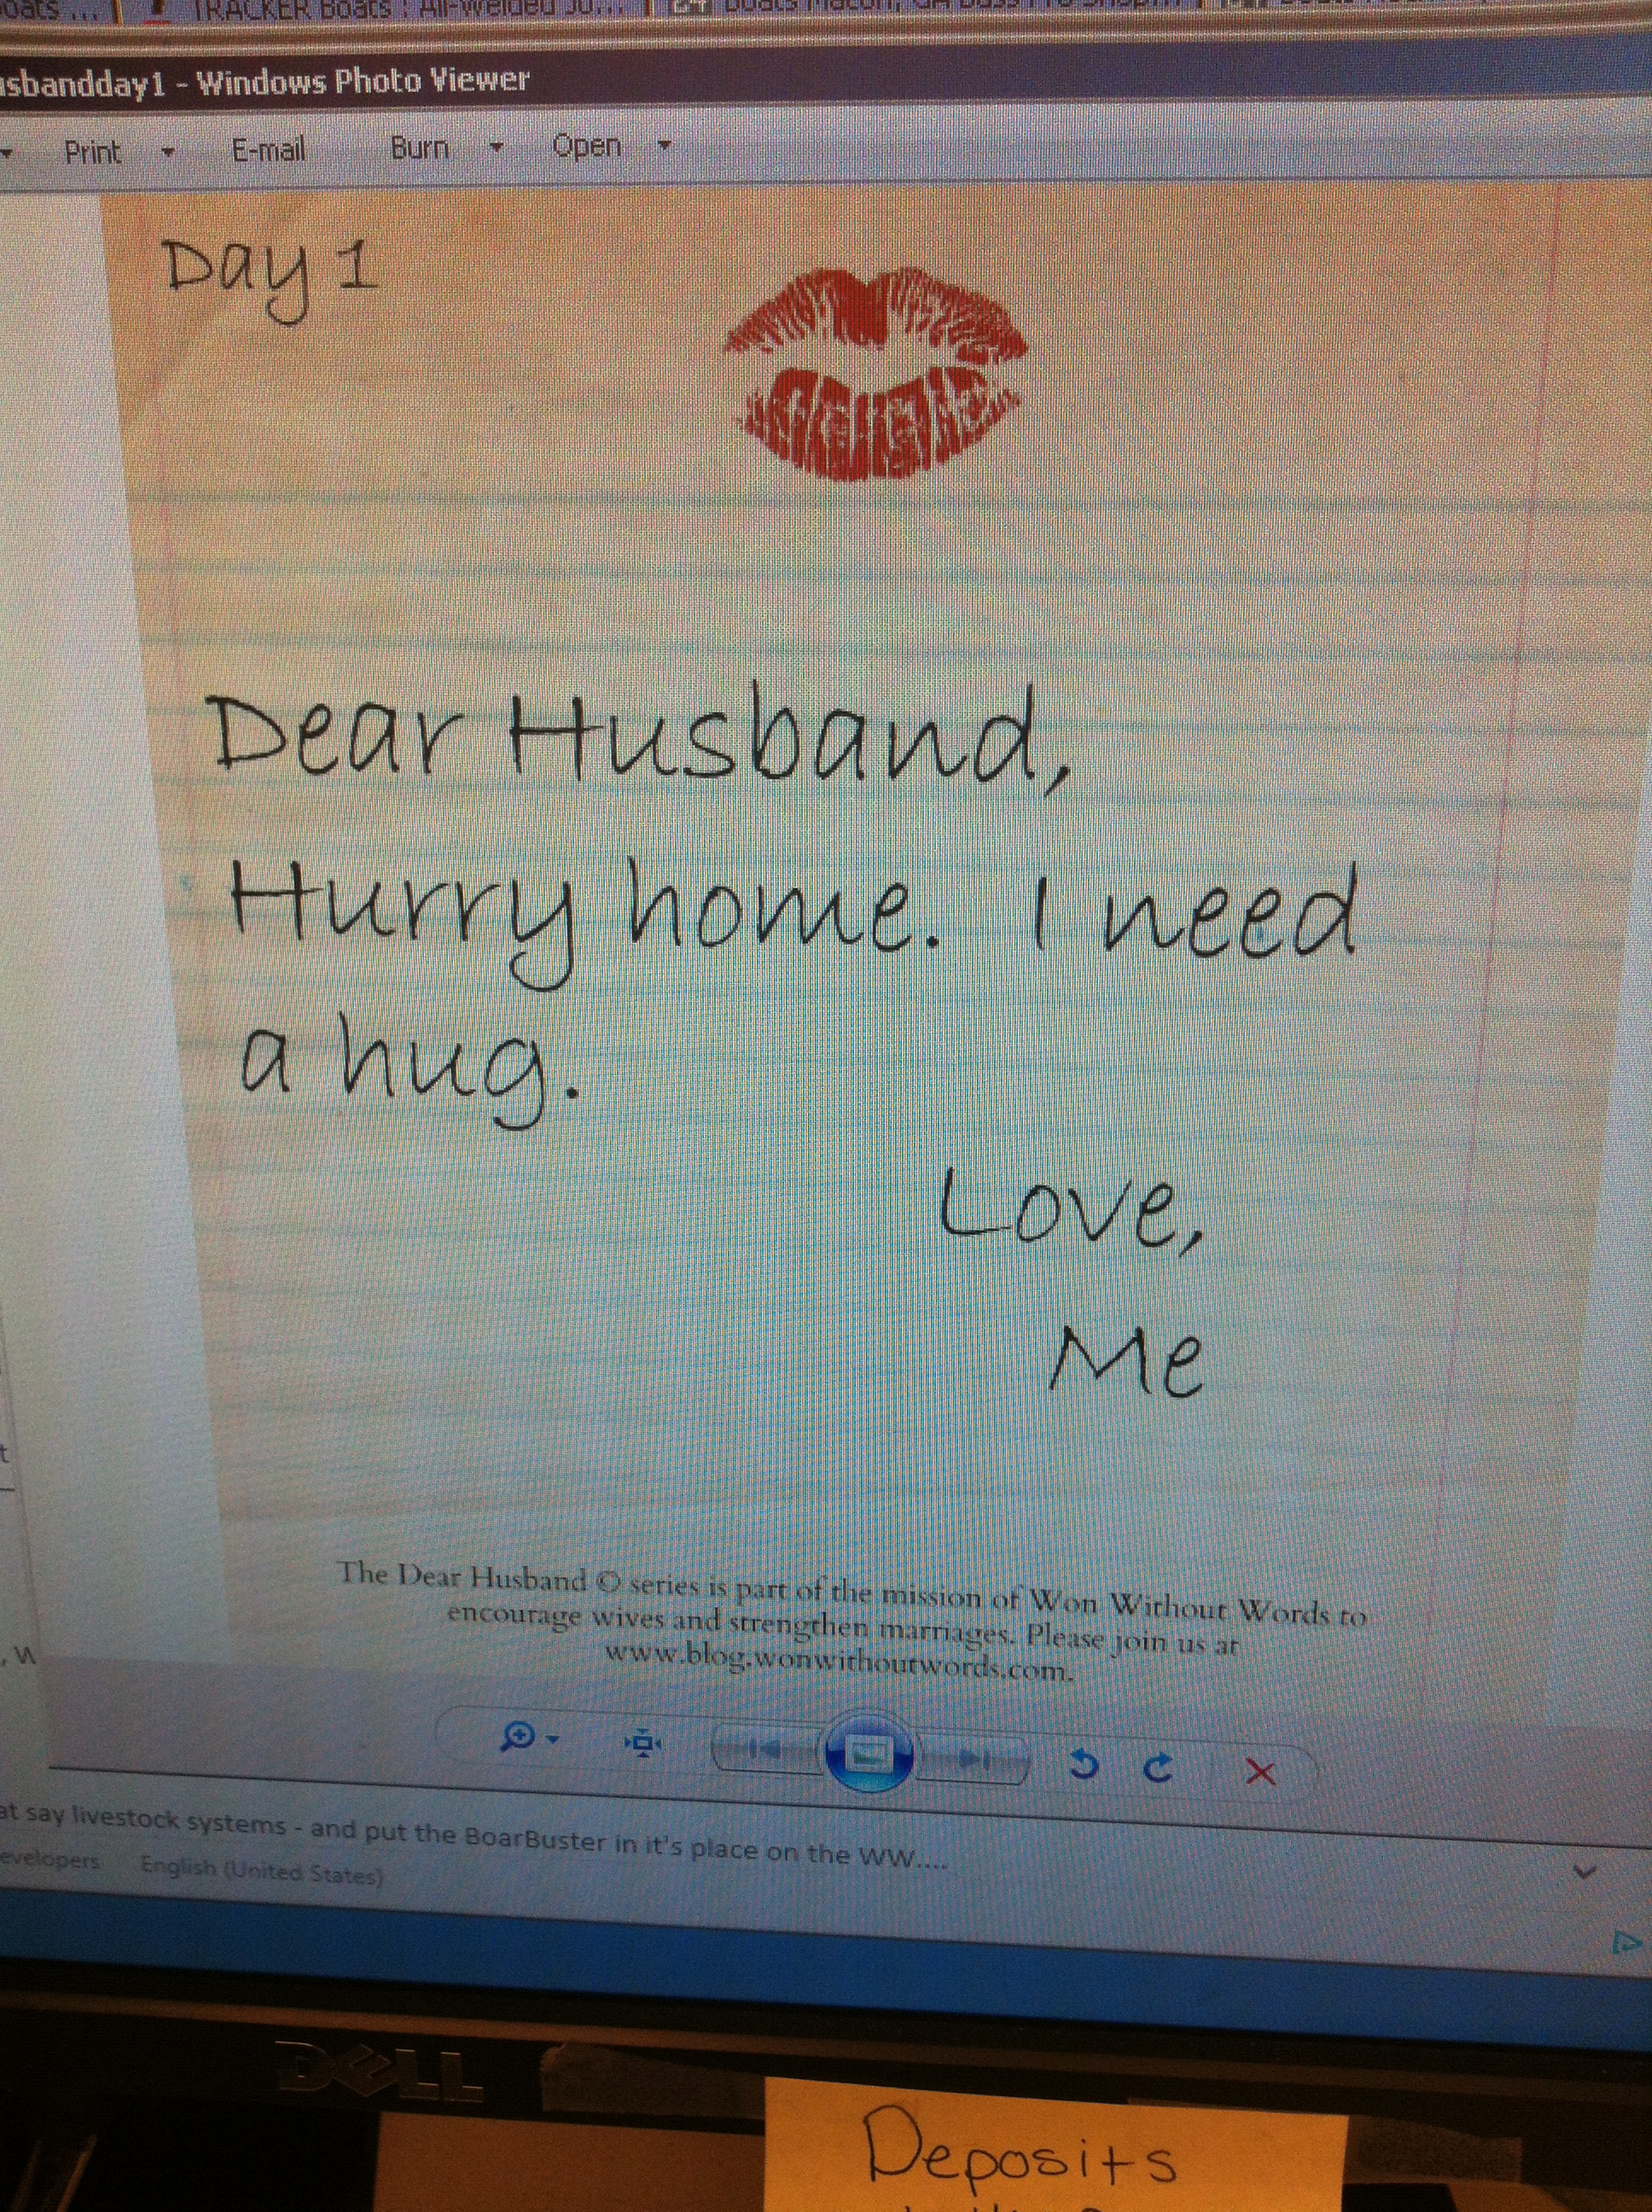 TRACKER Boats : All-Welded Jo...
Boats Macon, GA Bass Pro Shop...
sbandday1 - Windows Photo Viewer
Print E-mail Burn Open
Day 1
Dear Husband,
Hurry home. I need
a hug.
Love,
Me
The Dear Husband © series is part of the mission of Won Without Words to
encourage wives and strengthen marriages. Please join us at
www.blog.wonwithoutwords.com.
at say livestock systems - and put the BoarBuster in it's place on the WW....
evelopers English (United States)
DELL
Deposits